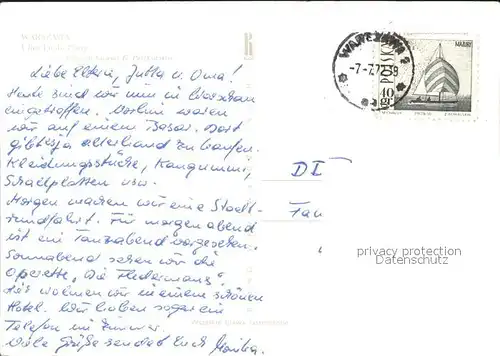 WARSZAWA
Liebe Eltern, Jutta u. Oma!
Heute sind wir nun in Warschau
eingetroffen. Vorhin waren
wir auf einem Basar. Dort
gibt es ja allerhand zu kaufen.
Kleidungsstücke, Kaugummi,
Schallplatten usw.
Morgen machen wir eine Stadt-
rundfahrt. Für morgen abend
ist ein Tanzabend vorgesehen.
Sonnabend sehen wir die
Operette "Die Fledermaus".
Hier wohnen wir in einem schönen
Hotel. Wir haben sogar ein
Telefon im Zimmer.
Viele Grüße sendet Euch
WARSZAWA 2
-7-7.77-
MAZURY
POLSKA
40
GR
DI
Fam
privacy protection
Datenschutz